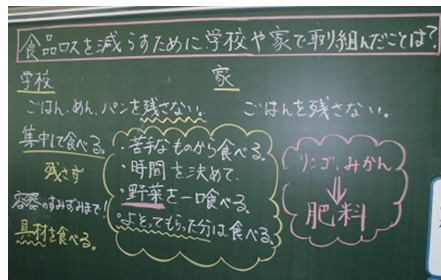 食品ロスを減らすために学校や家で取り組んだことは?
学校
家
ごはん、めん、パンを残さない。
ごはんを残さない。
集中して食べる。
残さず
容器のすみずみまで!
具材を食べる。
・苦手なものから食べる。
・時間を決めて
・野菜を一口食べる。
・よそってもらった分は食べる。
リンゴ、みかん
⇓
肥料